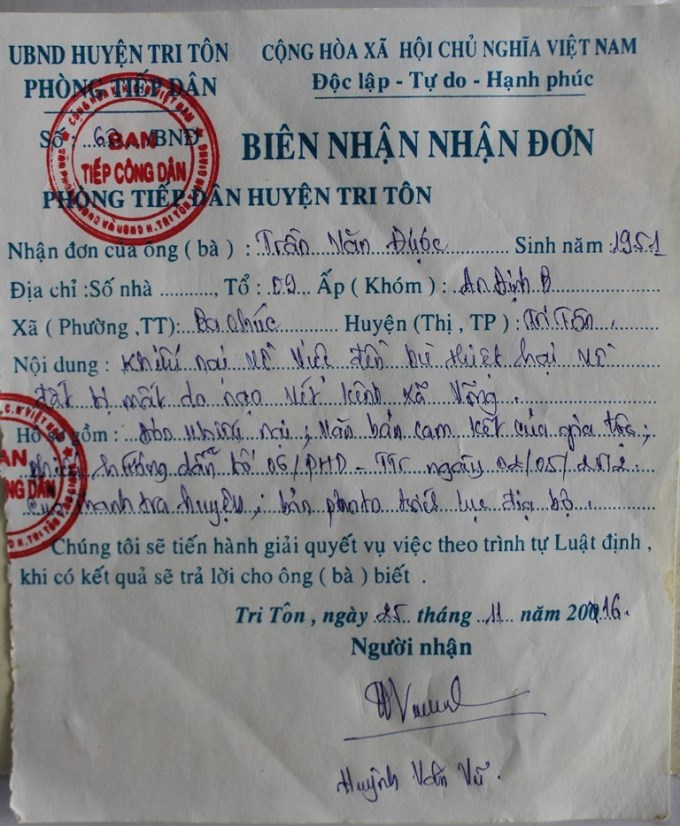 UBND HUYỆN TRI TÔN
CỘNG HÒA XÃ HỘI CHỦ NGHĨA VIỆT NAM
PHÒNG TIẾP DÂN
Độc lập - Tự do - Hạnh phúc
Số : /BNĐ
BAN
TIẾP CÔNG DÂN
BIÊN NHẬN NHẬN ĐƠN
PHÒNG TIẾP DÂN HUYỆN TRI TÔN
Nhận đơn của ông ( bà ) : Trần Văn Được Sinh năm : 1951
Địa chỉ :Số nhà .........., Tổ : 09 Ấp ( Khóm ) : An Định B
Xã ( Phường ,TT): Ba Chúc Huyện (Thị , TP ) : Tri Tôn
Nội dung : Khiếu nại về việc đền bù thiệt hại về
đất bị mất do nạo vét kênh xã Võng.
Hồ sơ gồm : Đơn khiếu nại ; văn bản cam kết của gia tộc ;
phiếu hướng dẫn số 06/PHD - TTr ngày 02/05/2012
của thanh tra huyện ; bản photo trích lục địa bộ .
Chúng tôi sẽ tiến hành giải quyết vụ việc theo trình tự Luật định ,
khi có kết quả sẽ trả lời cho ông ( bà ) biết .
Tri Tôn , ngày 25 tháng 11 năm 2016.
Người nhận
Huỳnh Văn Vũ.